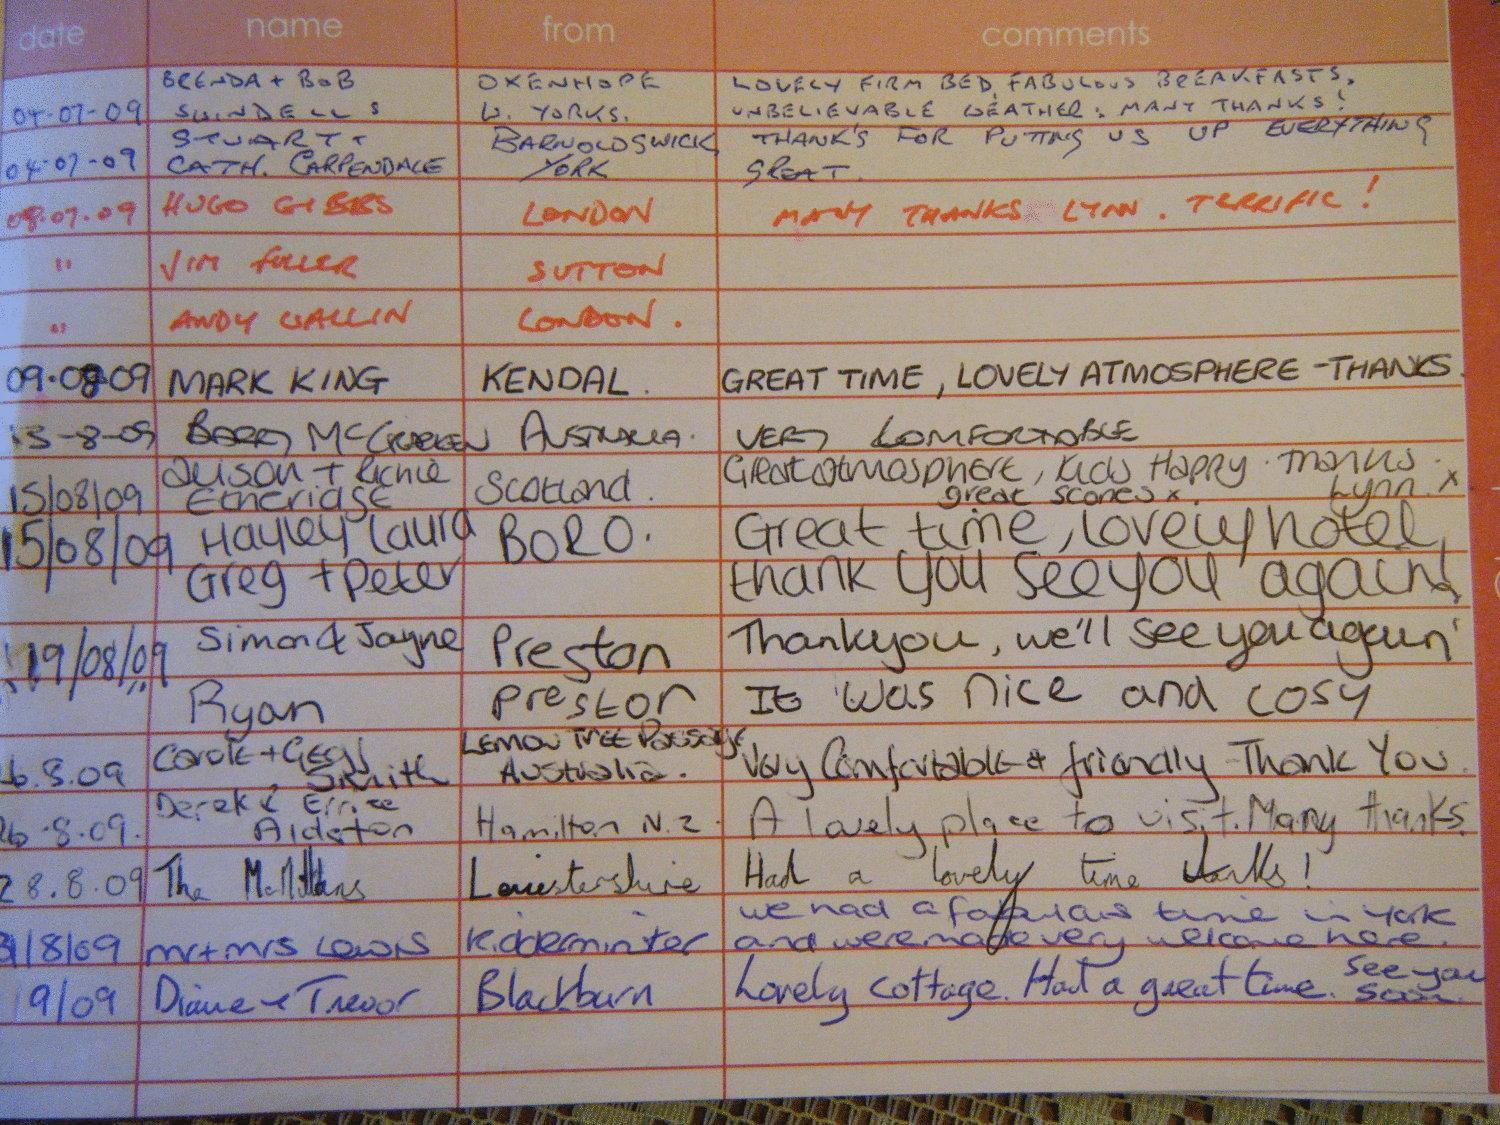 date name from comments
BRENDA + BOB OXENHOPE LOVELY FIRM BED, FABULOUS BREAKFASTS,
04-07-09 SWINDELLS W. YORKS. UNBELIEVABLE WEATHER. MANY THANKS!
STUART + BARNOLDSWICK THANK'S FOR PUTTING US UP EVERYTHING
04-07-09 CATH. CARPENDALE YORK GREAT.
08.07.09 HUGO GIBBS LONDON MANY THANKS LYNN. TERRIFIC!
" JIM FULLER SUTTON
" ANDY WALLIN LONDON.
09.08.09 MARK KING KENDAL. GREAT TIME, LOVELY ATMOSPHERE - THANKS.
13-8-09 BARRY McCRACKEN AUSTRALIA. VERY COMFORTABLE
Alison + Richie Great atmosphere, kids Happy. Thanks
15/08/09 Etheridge Scotland. great scones x. Lynn. x
15/08/09 Hayley Laura BORO. Great time, lovely hotel,
Greg + Peter thank you see you again!
19/08/09 Simon & Jayne Preston Thankyou, we'll see you again
Ryan Preston It was nice and cosy
Carole + Geoff LEMON TREE Passage
6.8.09 Smith Australia. Very Comfortable & friendly - Thank You.
Derek &
26-8-09. Alderton Hamilton N.Z. A lovely place to visit. Many thanks.
28.8.09 The McMillans Leicestershire Had a lovely time thanks!
we had a fabulous time in York
31/8/09 mr + mrs Lewis Kidderminster and were made very welcome here.
9/09 Diane & Trevor Blackburn Lovely cottage. Had a great time. See you
soon.